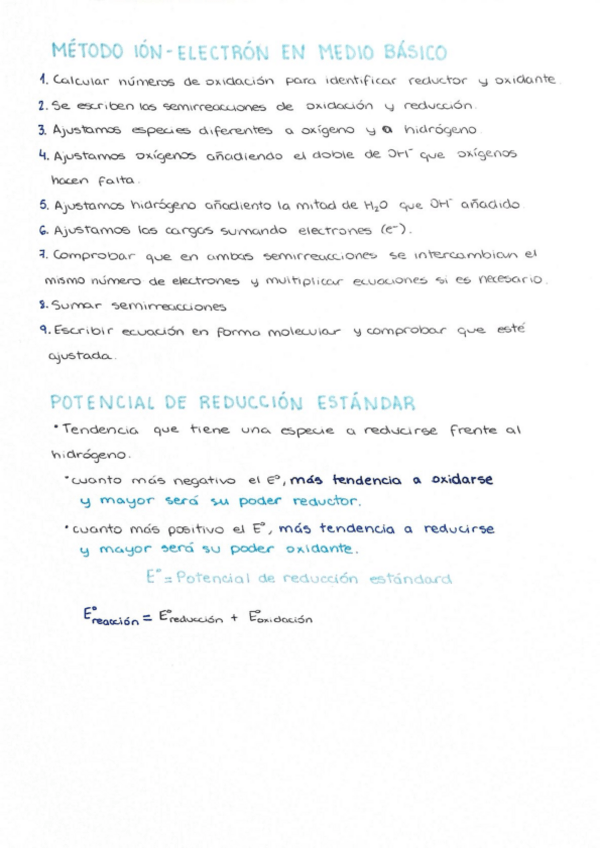 MÉTODO IÓN-ELECTRÓN EN MEDIO BÁSICO
1. Calcular números de oxidación para identificar reductor y oxidante.
2. Se escriben las semirreacciones de oxidación y reducción.
3. Ajustamos especies diferentes a oxígeno y a hidrógeno.
4. Ajustamos oxígenos añadiendo el doble de OH⁻ que oxígenos
hacen falta.
5. Ajustamos hidrógeno añadiento la mitad de H₂O que OH⁻ añadido.
6. Ajustamos las cargas sumando electrones (e⁻).
7. Comprobar que en ambas semirreacciones se intercambian el
mismo número de electrones y multiplicar ecuaciones si es necesario.
8. Sumar semirreacciones
9. Escribir ecuación en forma molecular y comprobar que esté
ajustada.
POTENCIAL DE REDUCCIÓN ESTÁNDAR
• Tendencia que tiene una especie a reducirse frente al
hidrógeno.
• cuanto más negativo el E°, más tendencia a oxidarse
y mayor será su poder reductor.
• cuanto más positivo el E°, más tendencia a reducirse
y mayor será su poder oxidante.
E° = Potencial de reducción estándard
E°reacción = E°reducción + E°oxidación